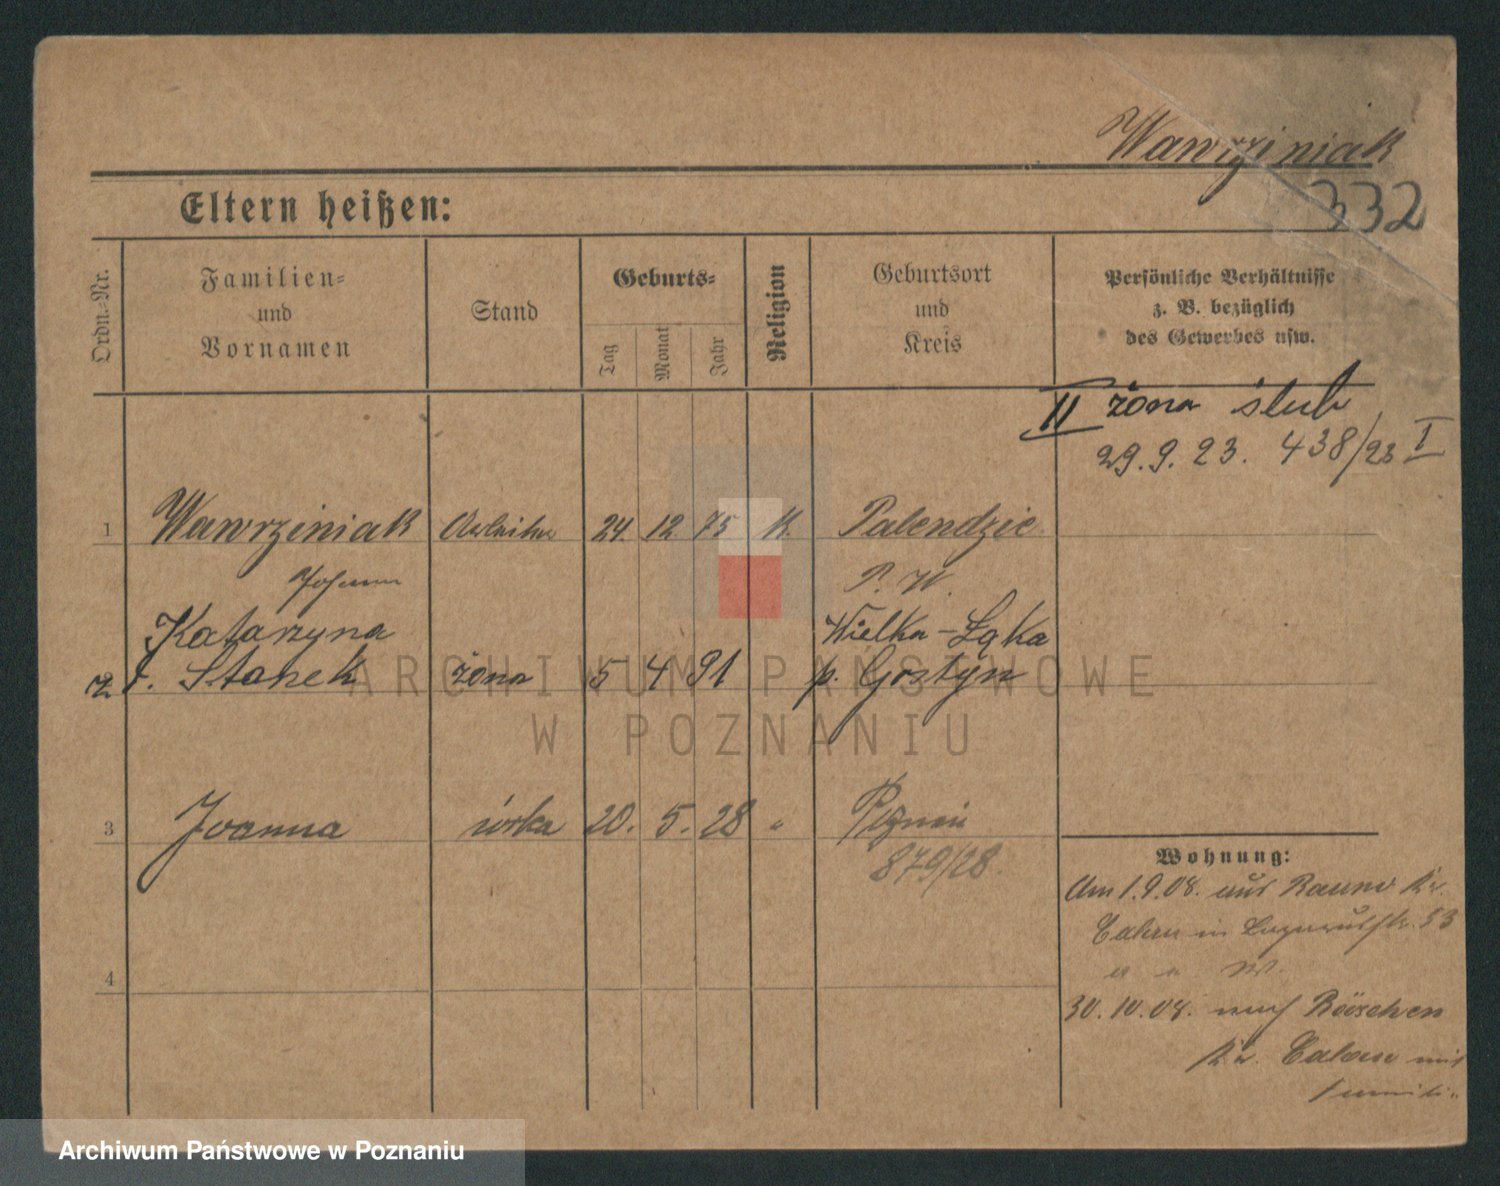 Wawrziniak
332
Eltern heißen:
Ordn.-Nr.
Familien-
und
Vornamen
Stand
Geburts-
Tag
Monat
Jahr
Religion
Geburtsort
und
Kreis
Persönliche Verhältnisse
z. B. bezüglich
des Gewerbes usw.
II żona ślub
29.9.23. 438/23 I
1 Wawrziniak Arbeiter 24. 12 75 K. Palendzie
Johann P. W.
Katarzyna Wielka-Łąka
2 r. Stanek żona 5 4 91 p. Gostyn
3 Joanna córka 20. 5. 28 " Poznań
879/28.
4
Wohnung:
Am 1.9.08. aus Kr.
in 33
" " W.
30.10.08. nach Kr. mit
ARCHIWUM PAŃSTWOWE
W POZNANIU
Archiwum Państwowe w Poznaniu